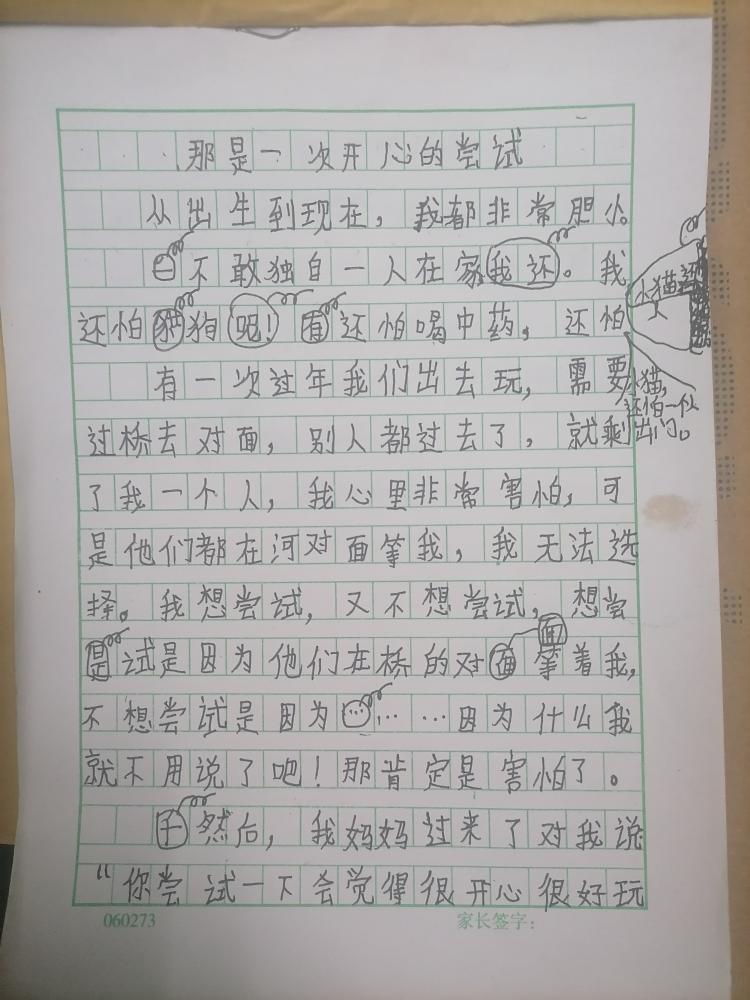 那是一次开心的尝试
从出生到现在，我都非常胆小。
不敢独自一人在家我还。我
还怕猫狗呢！有还怕喝中药，还怕
小猫，
还怕一个人
出门。
有一次过年我们出去玩，需要
过桥去对面，别人都过去了，就剩
了我一个人，我心里非常害怕，可
是他们都在河对面等我，我无法选
择。我想尝试，又不想尝试，想尝
是试是因为他们在桥的对面等着我，
面
不想尝试是因为……因为什么我
就不用说了吧！那肯定是害怕了。
然后，我妈妈过来了对我说
“你尝试一下会觉得很开心很好玩
060273
家长签字：